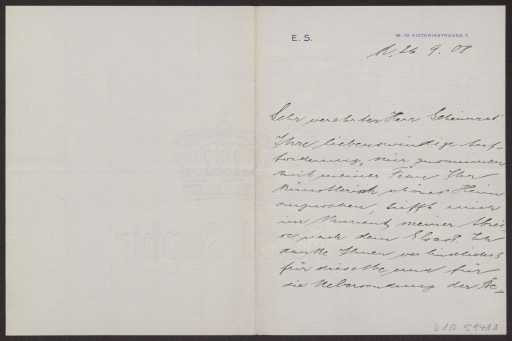 E. S.
W. 10 VICTORIASTRASSE 7.
26. 9. 08
Sehr verehrter Herr Geheimrat
Ihre liebenswürdige Auf-
forderung, mir zusammen
mit meiner Frau Ihr
künstlerisch schönes Heim
anzusehen, trifft mich
im Moment meiner Abrei-
se nach dem Elsass. Ich
danke Ihnen verbindlichst
für dieselbe und für
die Uebersendung der